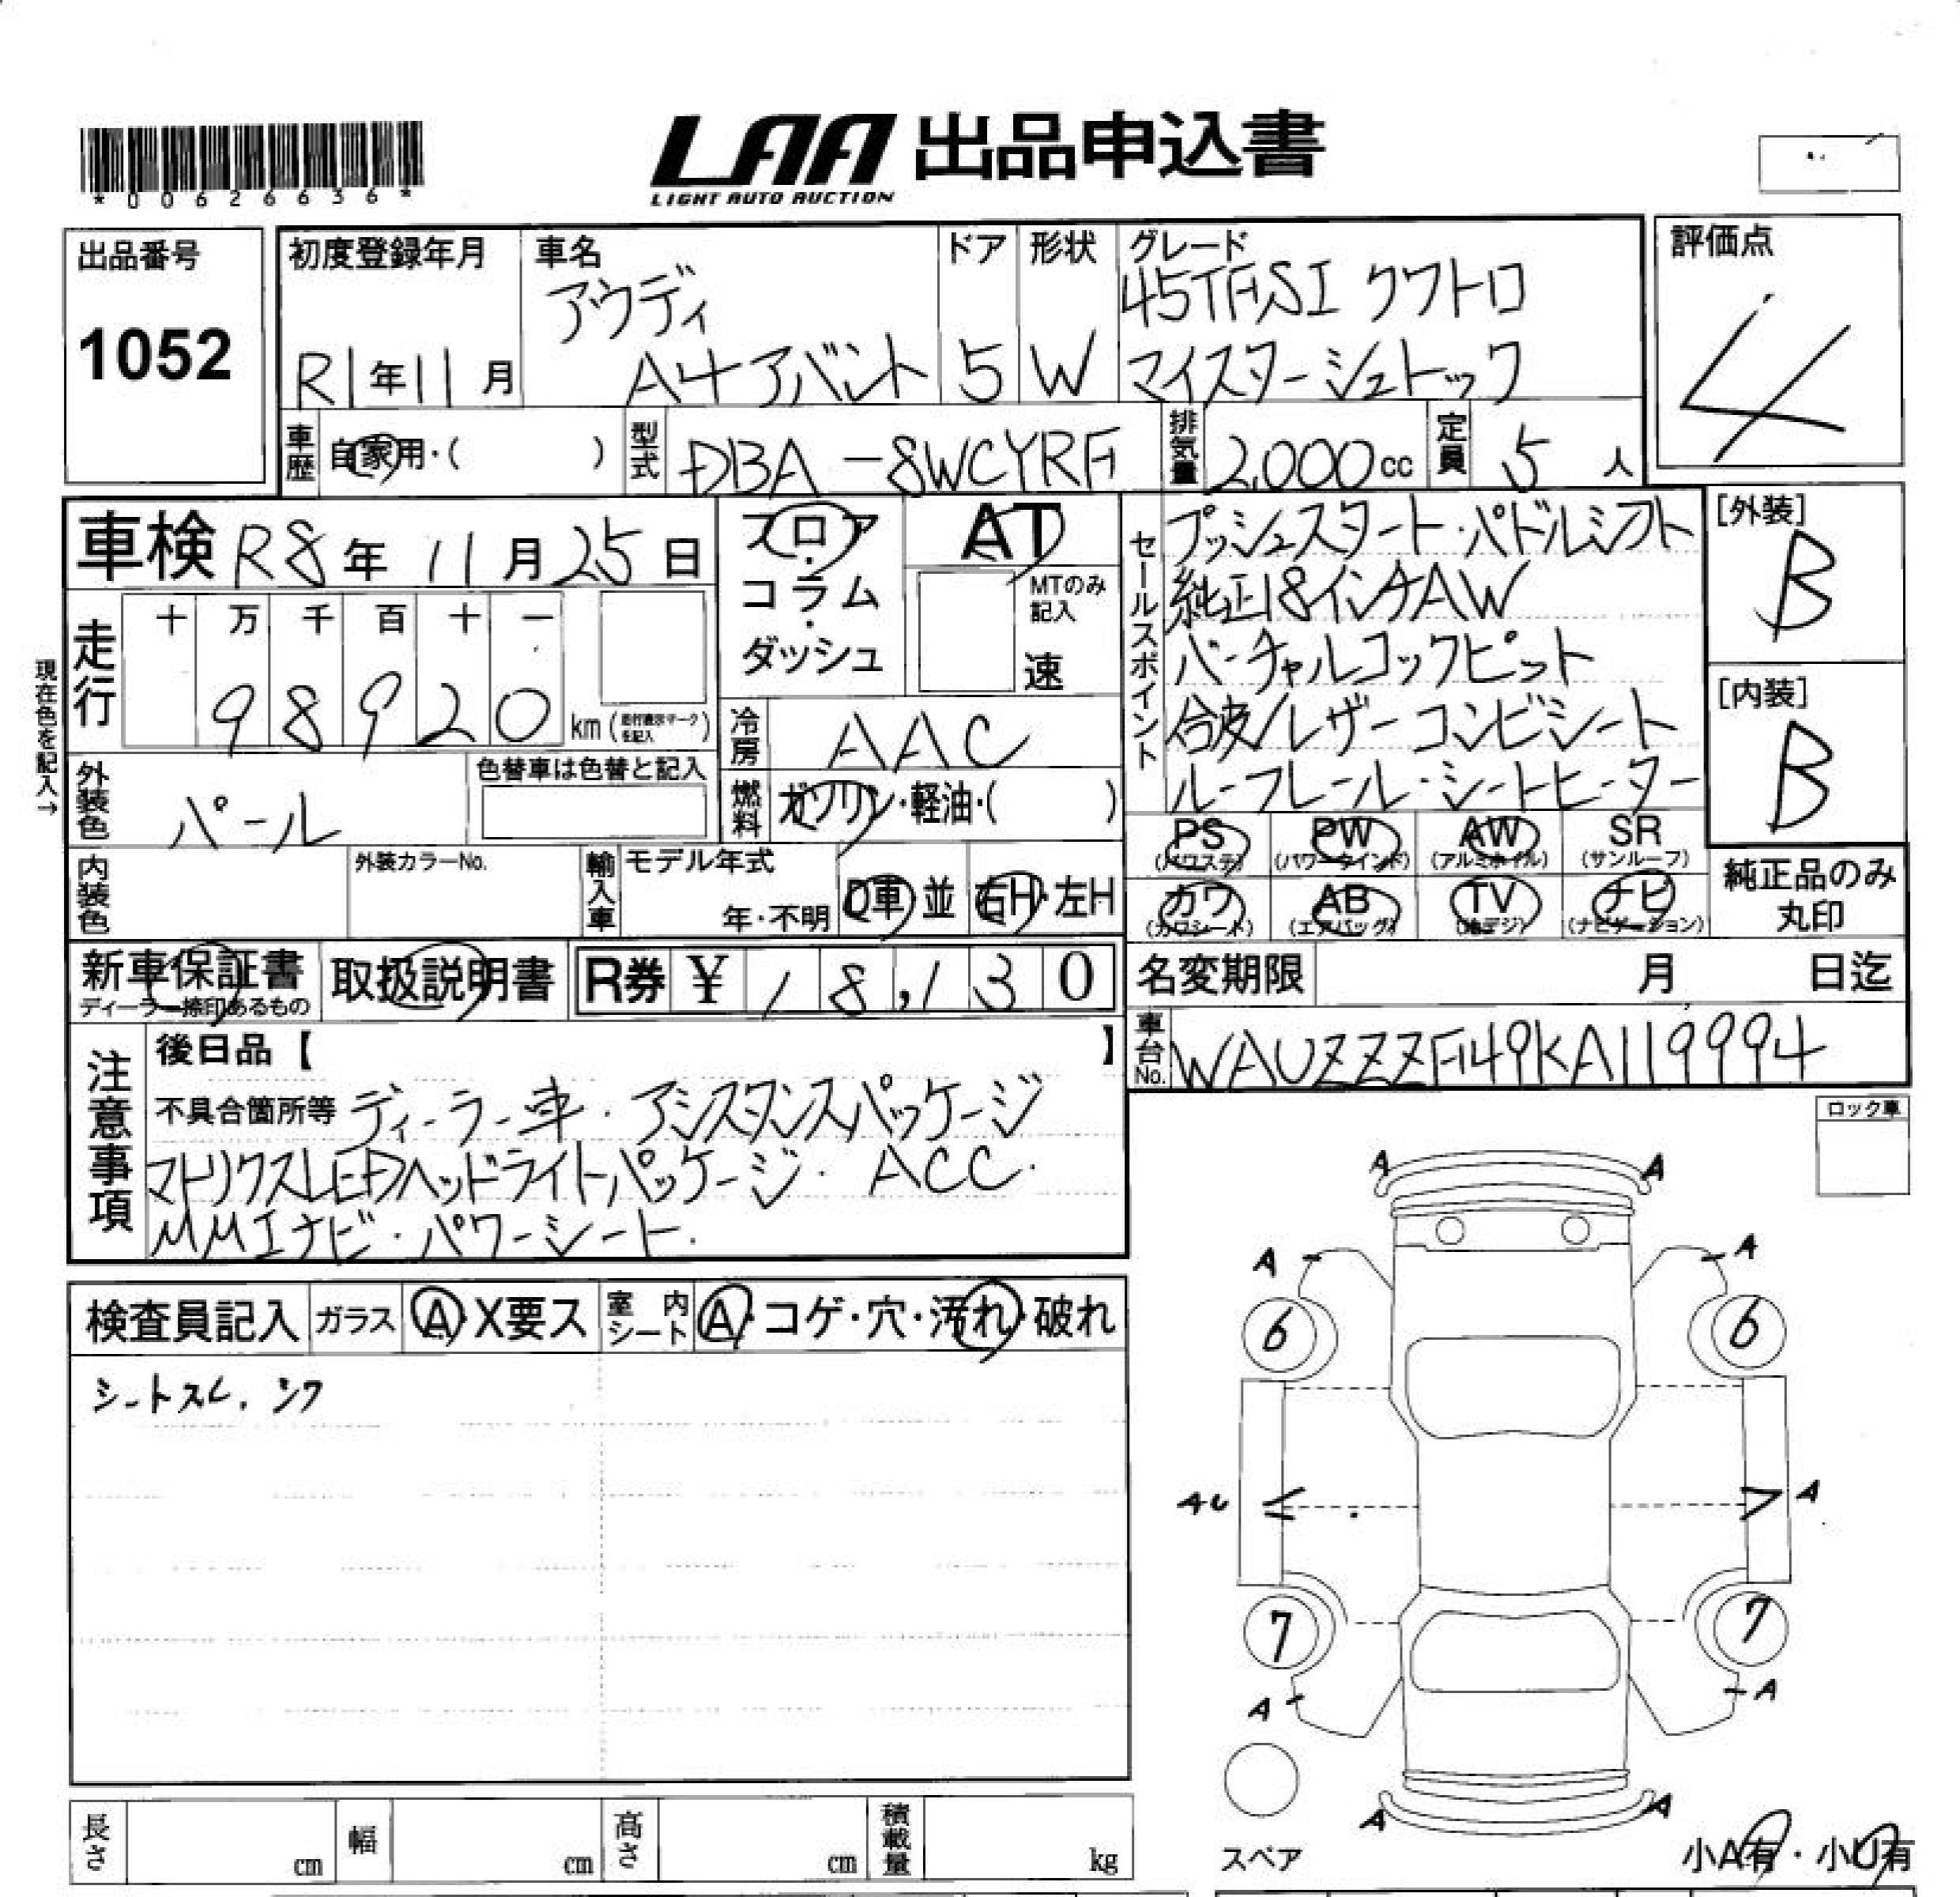 *00626636*
LAA 出品申込書
LIGHT AUTO AUCTION
出品番号
1052
初度登録年月
R1年11月
車名
アウディ
A4アバント
ドア
5
形状
W
グレード
45TFSI クワトロ
マイスターシュトゥック
評価点
4
車歴
自家用・( )
型式
DBA-8WCYRF
排気量
2,000cc
定員
5人
車検 R8年11月25日
フロア
・
コラム
・
ダッシュ
AT
MTのみ
記入
速
セールスポイント
プッシュスタート・パドルシフト
純正18インチAW
バーチャルコックピット
合皮/レザーコンビシート
ルーフレール・シートヒーター
[外装]
B
[内装]
B
現在色を記入→
走行
十 万 千 百 十 一
98920
km(走行表示マークを記入)
冷房
AAC
燃料
ガソリン・軽油・( )
外装色
パール
色替車は色替と記入
内装色
外装カラーNo.
輸入車
モデル年式
年・不明
D車・並
右H・左H
PS
(パワステ)
PW
(パワーウインド)
AW
(アルミホイル)
SR
(サンルーフ)
カワ
(カワシート)
AB
(エアバッグ)
TV
(地デジ)
ナビ
(ナビゲーション)
純正品のみ
丸印
新車保証書
ディーラー捺印あるもの
取扱説明書
R券 ¥18,130
名変期限 月 日迄
車台No.
WAUZZZF49KA119994
注意事項
後日品【 】
不具合箇所等 ディーラー車・アシスタンスパッケージ
マトリクスLEDヘッドライトパッケージ・ACC・
MMIナビ・パワーシート・
ロック車
検査員記入
ガラス
A・X要ス
室内シート
A・コゲ・穴・汚れ・破れ
シートスレ、シワ
A A
A A
6 6
AU A
7 7
A A
A A
スペア
小A有・小U有
長さ cm
幅 cm
高さ cm
積載量 kg